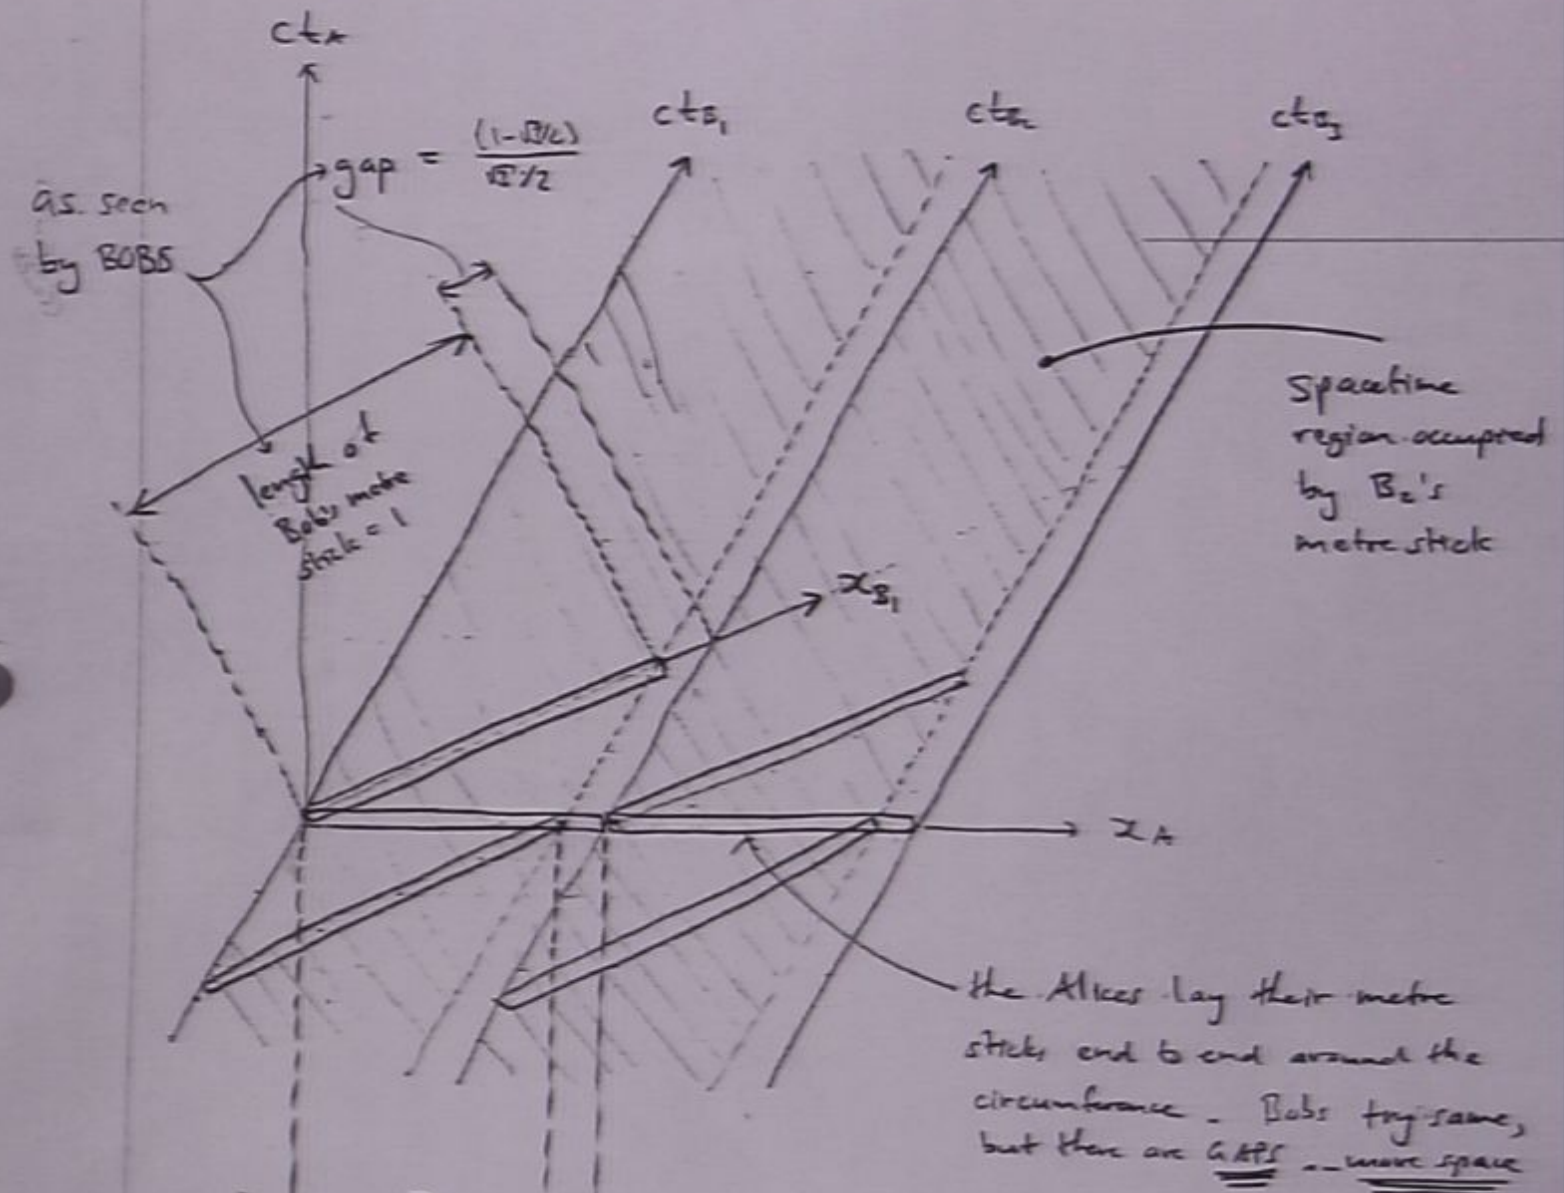 ctA
ctB1
ctB2
ctB3
gap = (1-√3/2)
√3/2
as seen
by BOBS
length of
Bob's metre
stick = 1
spacetime
region occupied
by B2's
metre stick
xB1
xA
the Alices lay their metre
sticks end to end around the
circumference. Bobs try same,
but there are GAPS... more space